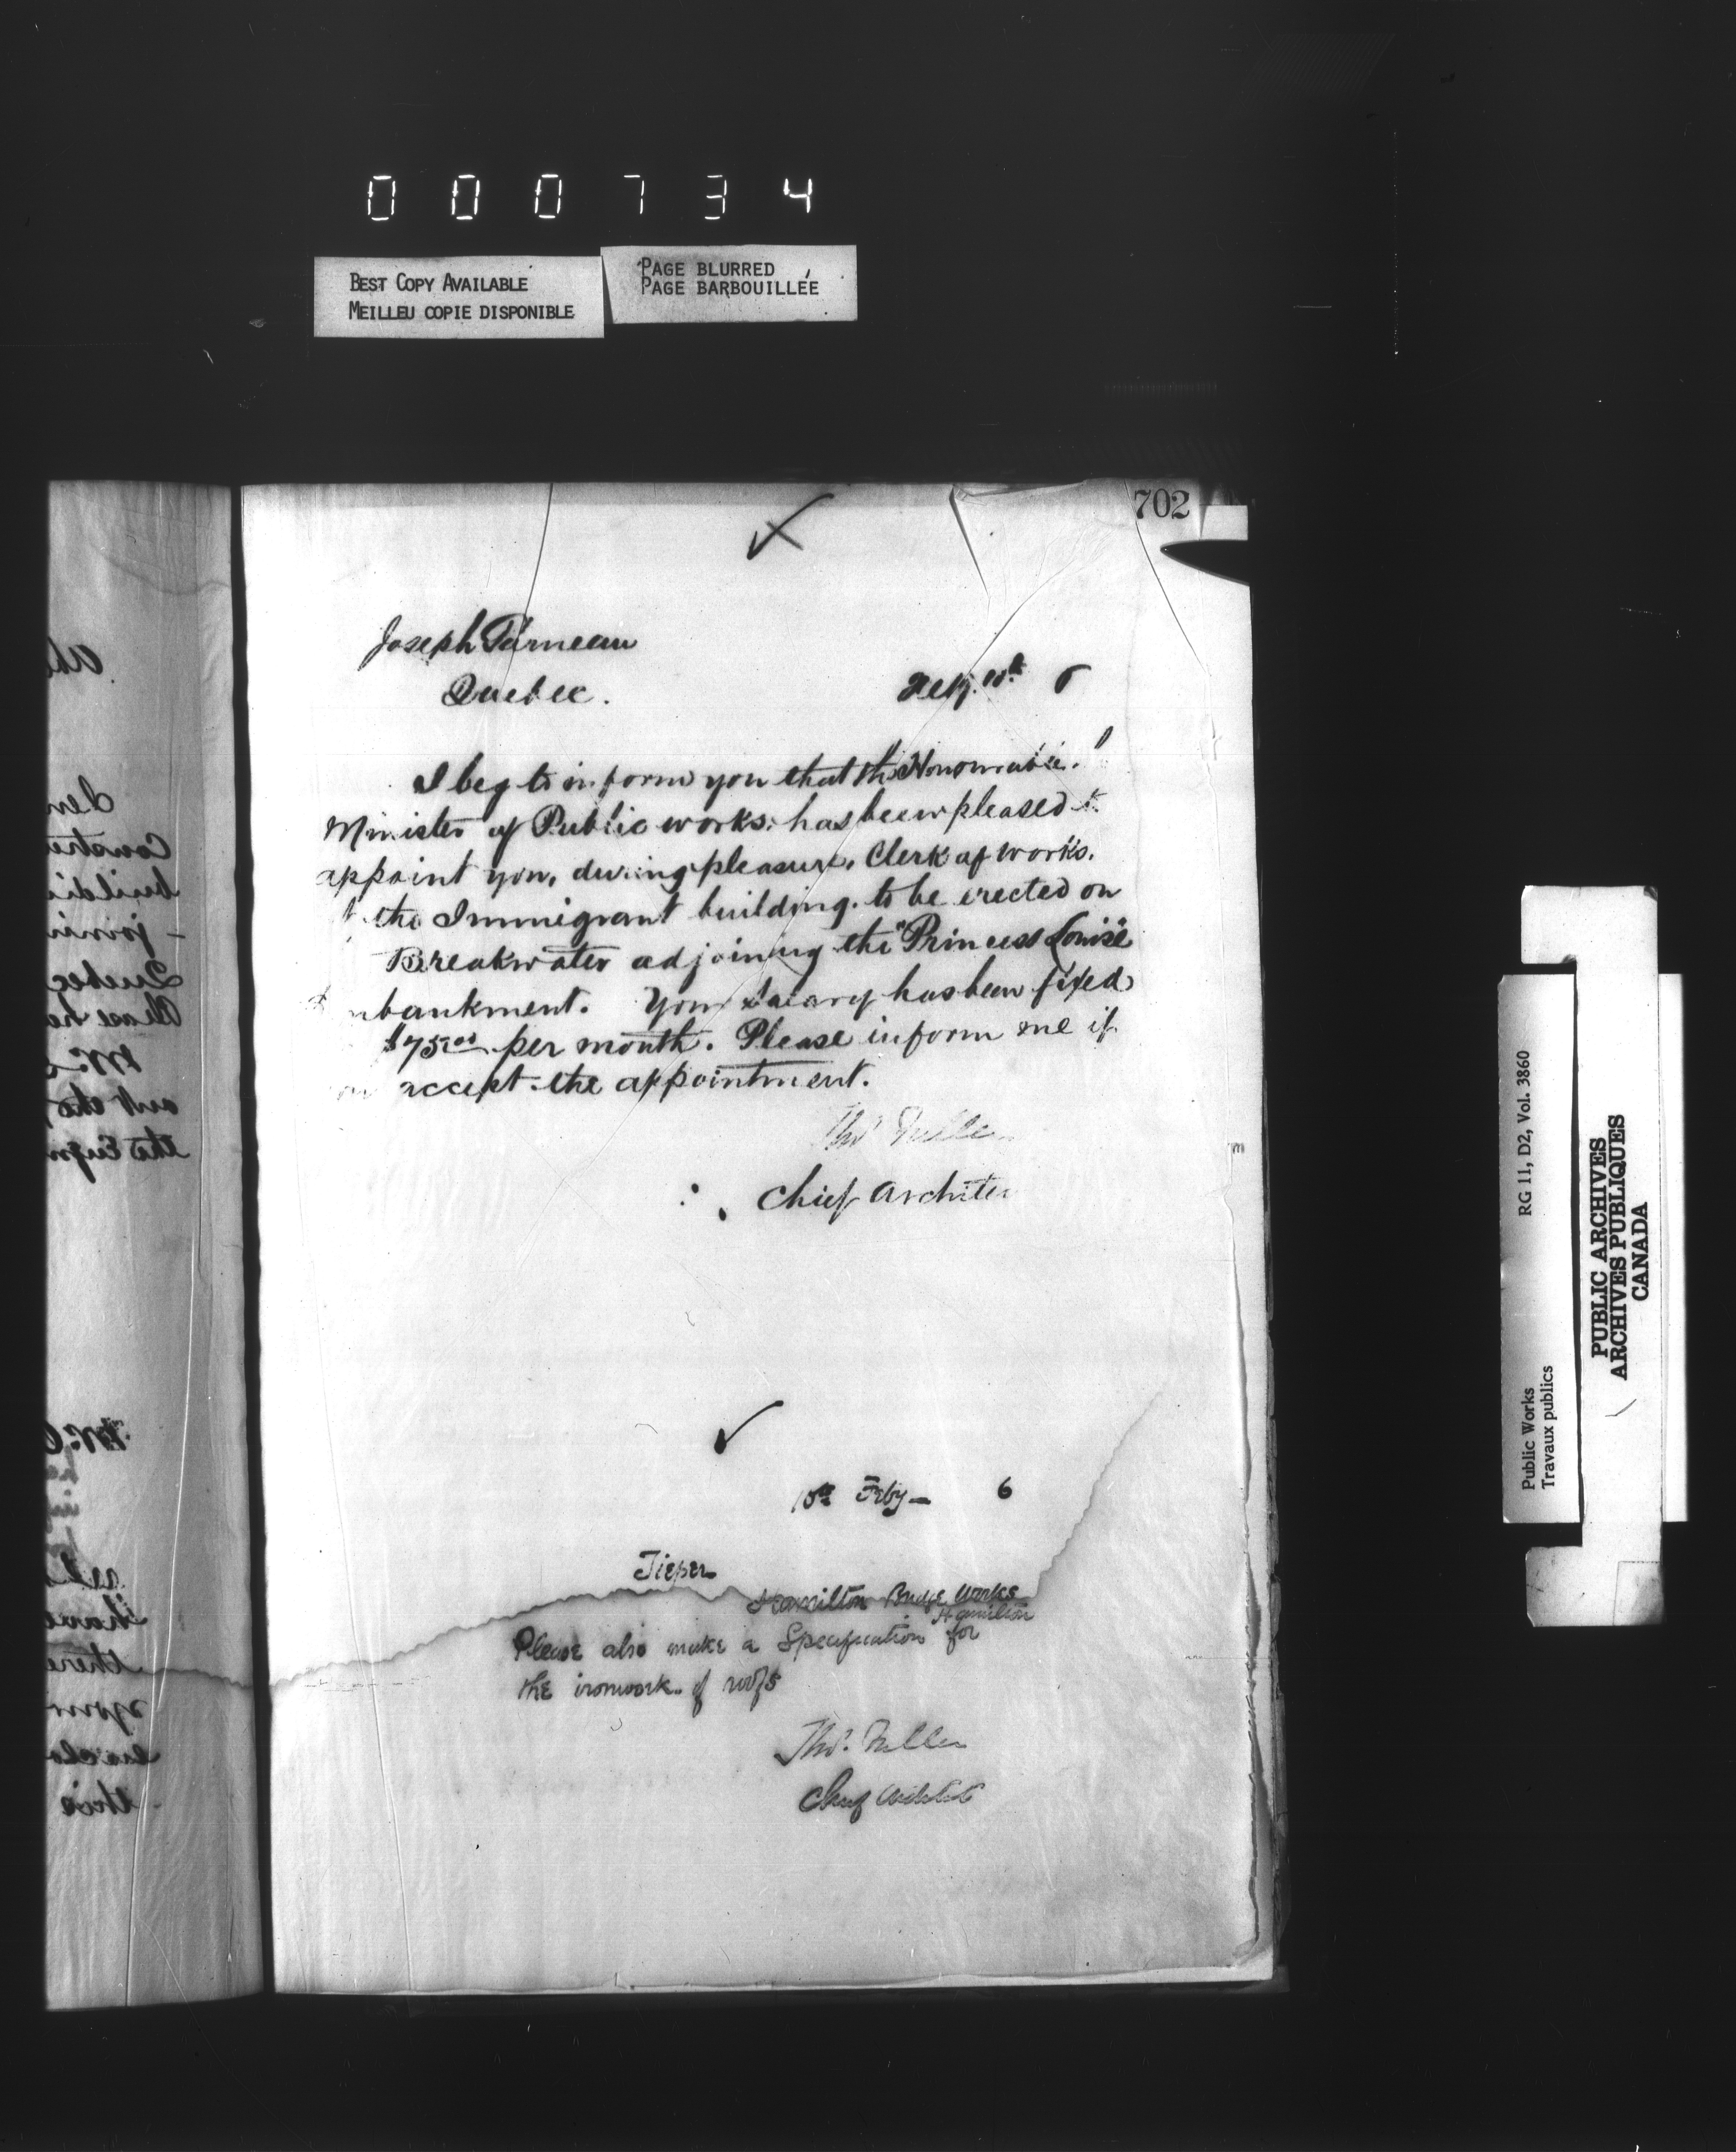 000734
BEST COPY AVAILABLE
MEILLEU COPIE DISPONIBLE
PAGE BLURRED
PAGE BARBOUILLÉE
702
Joseph
Quebec.
Feby. 10th 6
I beg to inform you that the Honourable
Minister of Public works. has been pleased to
appoint you, during pleasure, Clerk of works.
the Immigrant building. to be erected on
Breakwater adjoining the "Princess Louise
mbankment. Your salary has been fixed
$75.00 per month. Please inform me if
accept the appointment.
Thos Fuller
Chief Architec
10th Feby - 6
Hamilton Bridge Works
Hamilton
Please also make a Specification for
the ironwork of roofs
Thos. Fuller
Chief Architect
Public Works
Travaux publics
RG 11, D2, Vol. 3860
PUBLIC ARCHIVES
ARCHIVES PUBLIQUES
CANADA